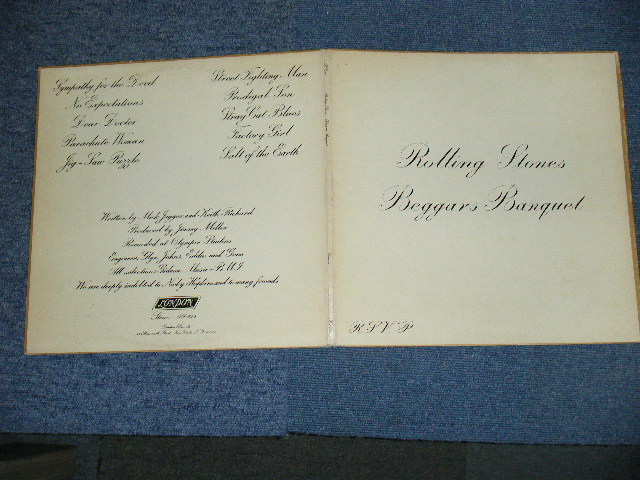 Sympathy for the Devil
No Expectations
Dear Doctor
Parachute Woman
Jig-Saw Puzzle
Street Fighting Man
Prodigal Son
Stray Cat Blues
Factory Girl
Salt of the Earth
Written by Mick Jagger and Keith Richard
Produced by Jimmy Miller
Recorded at Olympic Studios
Engineers, Glyn Johns, Eddie and Gene
All selections Gideon Music - B.M.I.
We are deeply indebted to Nicky Hopkins and to many friends
LONDON
Stereo
London Records
Rolling Stones
Beggars Banquet
R.S.V.P.